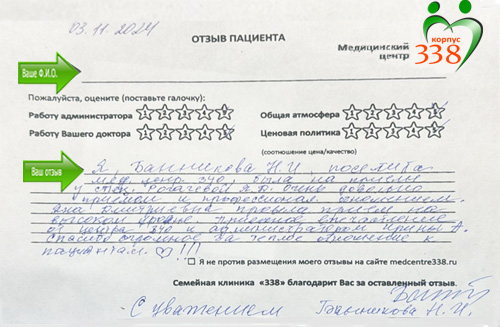 03.11.2024
корпус
338
ОТЗЫВ ПАЦИЕНТА
Медицинский
центр
Ваше Ф.И.О.
Пожалуйста, оцените (поставьте галочку):
Работу администратора
Общая атмосфера
Работу Вашего доктора
Ценовая политика
(соотношение цена/качество)
Ваш отзыв
Я Банникова Н.И посетила
мед. центр 340 была на приёме
у спец. Рогачевой Я.В. Очень довольна
приёмом и профессион. отношением.
Она внимательна провела приём на
высоком уровне. Приятное впечатление
от центра 340 и администратором Ирины А.
Спасибо огромное за теплое отношение к
пациентам. ♡!!!
Я не против размещения моего отзывы на сайте medcentre338.ru
Семейная клиника «338» благодарит Вас за оставленный отзыв.
- С уважением Банникова Н.И.